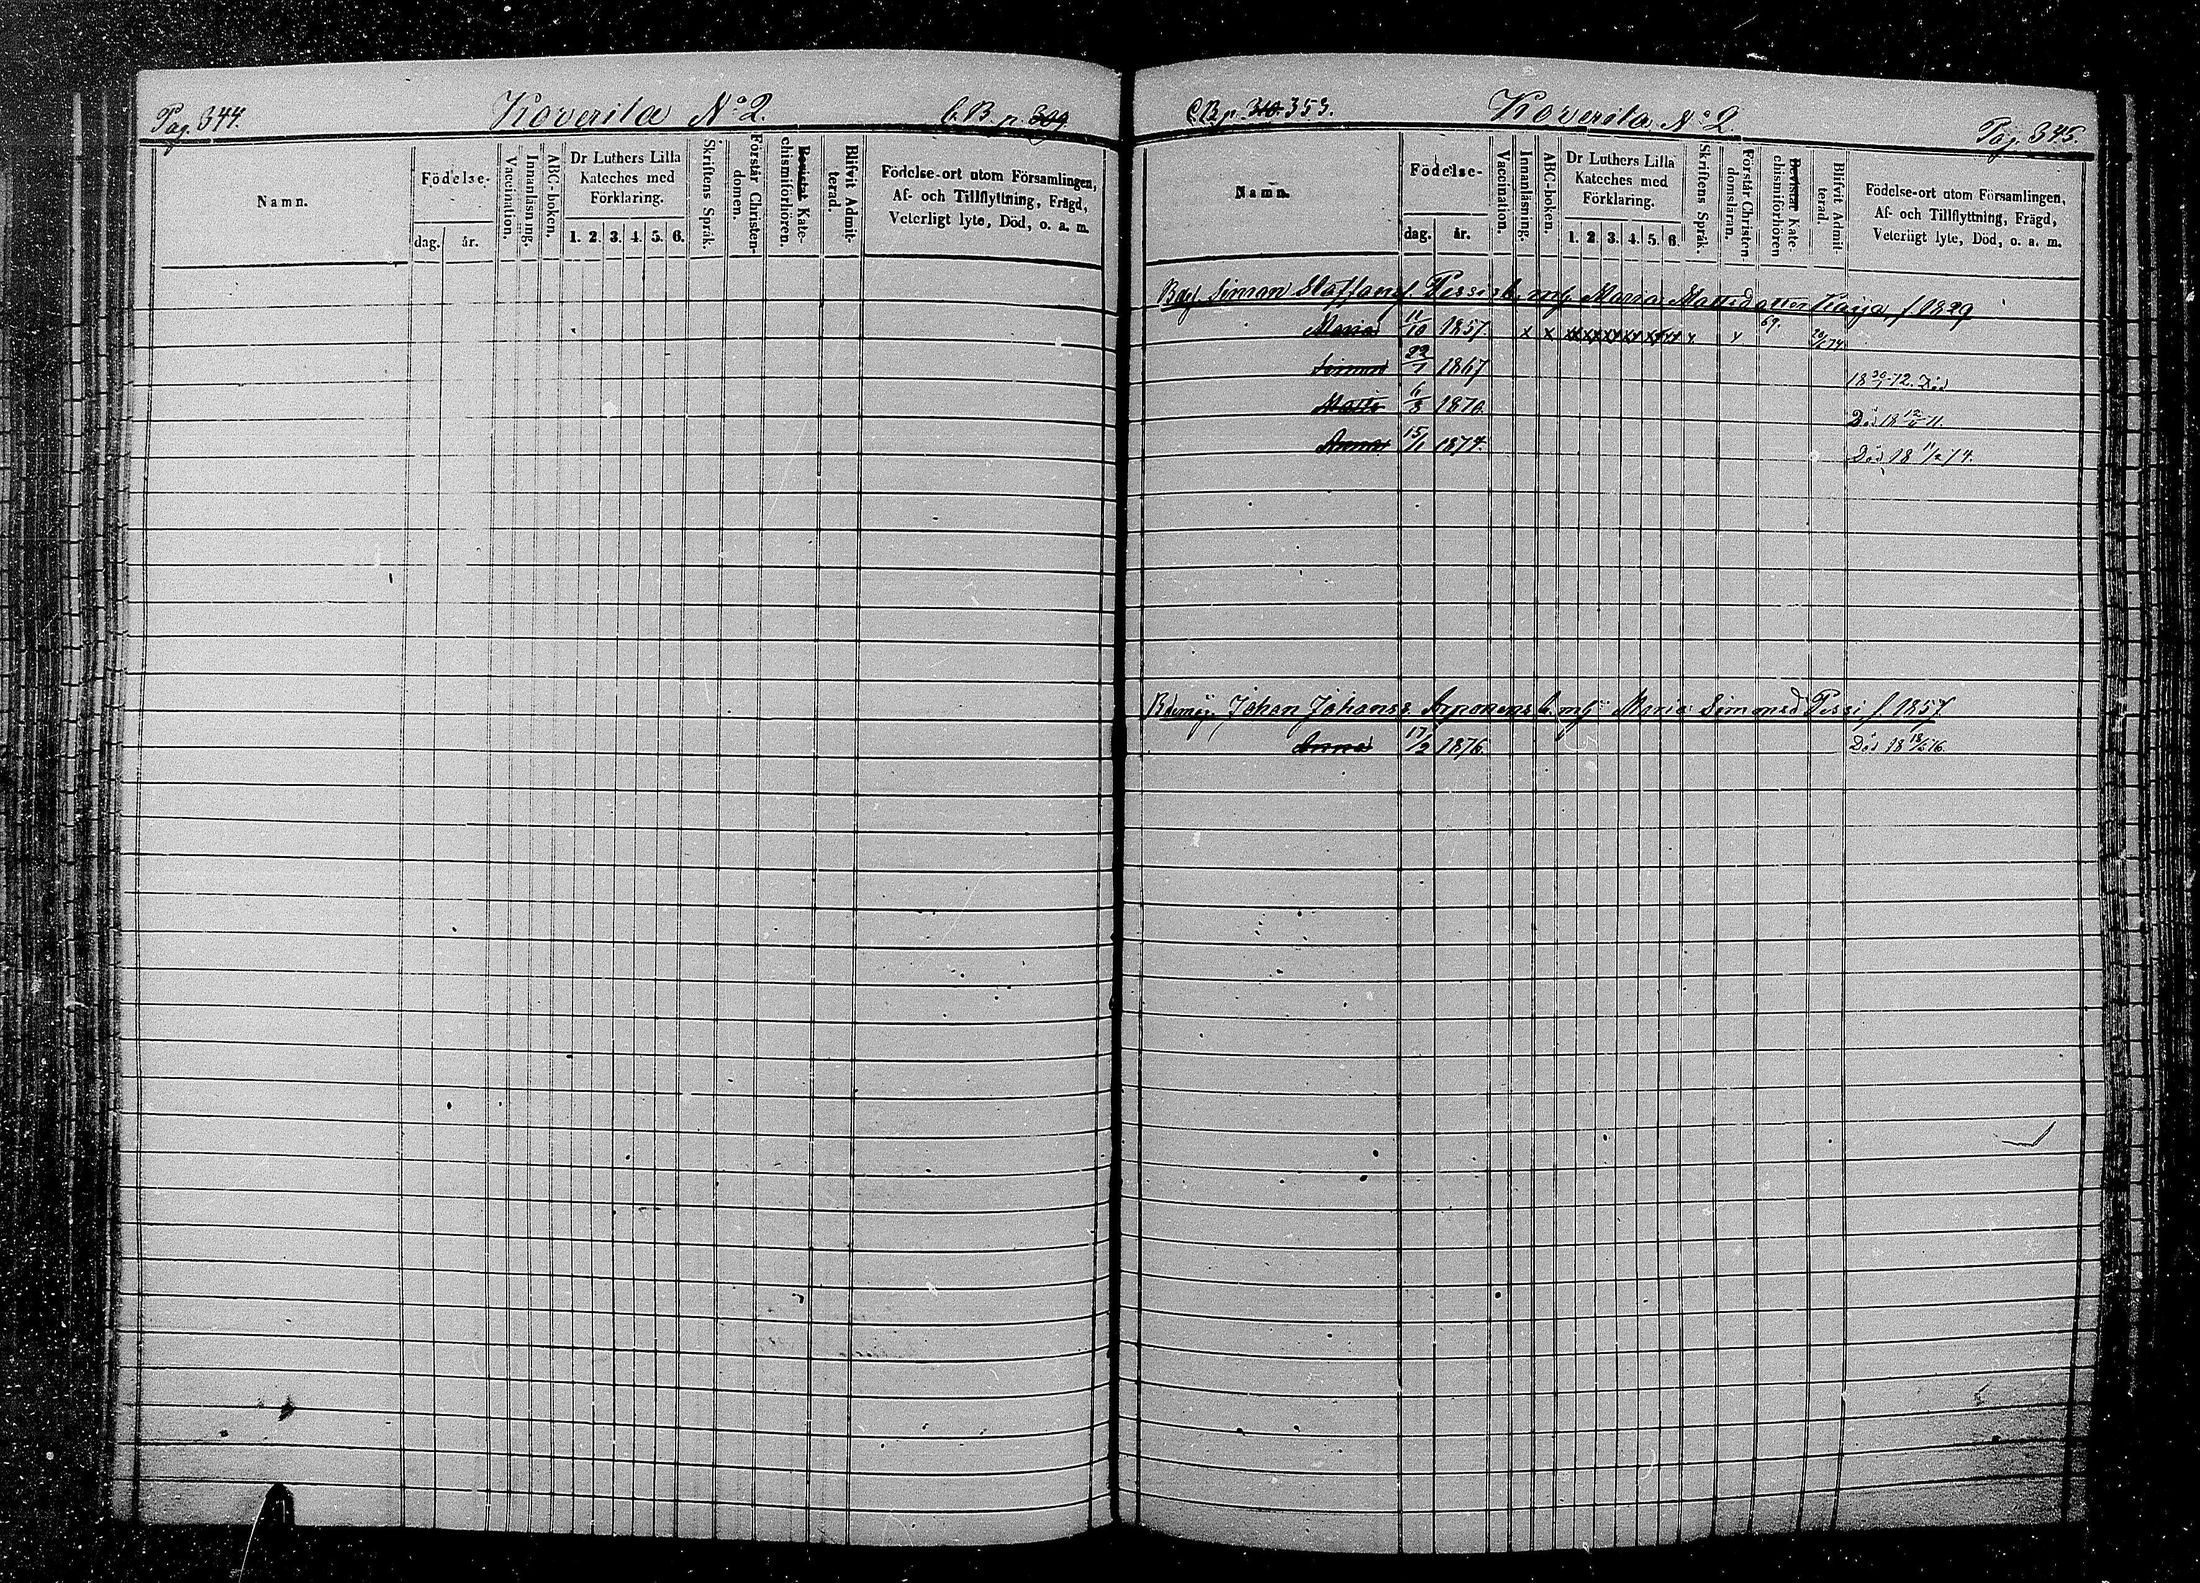 Pag. 344. Koverila No 2. C.B. p. 309
Namn. Födelse- dag. år. Vaccination. Innanläsning. ABC-boken. Dr Luthers Lilla Kateches med Förklaring. 1. 2. 3. 4. 5. 6. Skriftens Språk. Förstår Christendomen. Bevistat Katechismiförhören. Blifvit Admitterad. Födelse-ort utom Församlingen, Af- och Tillflyttning, Frägd, Veterligt lyte, Död, o. a. m.
C.B. p. 310. 353. Koverila No 2. Pag. 345.
Namn. Födelse- dag. år. Vaccination. Innanläsning. ABC-boken. Dr Luthers Lilla Kateches med Förklaring. 1. 2. 3. 4. 5. 6. Skriftens Språk. Förstår Christendomsläran. Bevistat Katechismiförhören Blifvit Admitterad. Födelse-ort utom Församlingen, Af- och Tillflyttning, Frägd, Veterligt lyte, Död, o. a. m.
Simon Staffansf Pessi b. m h. Maria Mattsdotter f. 1829
Maria 11/10 1857. x x x x x x x x x x 69.
Simon 22/1 1867 Död
Matts 1870. Död
Anna 15/1 1874. Död 18 11/2 74.
Johan Johanss Arponens b. m h. Maria Simonsd Pessi f. 1857.
Anna 17/2 1876. Död